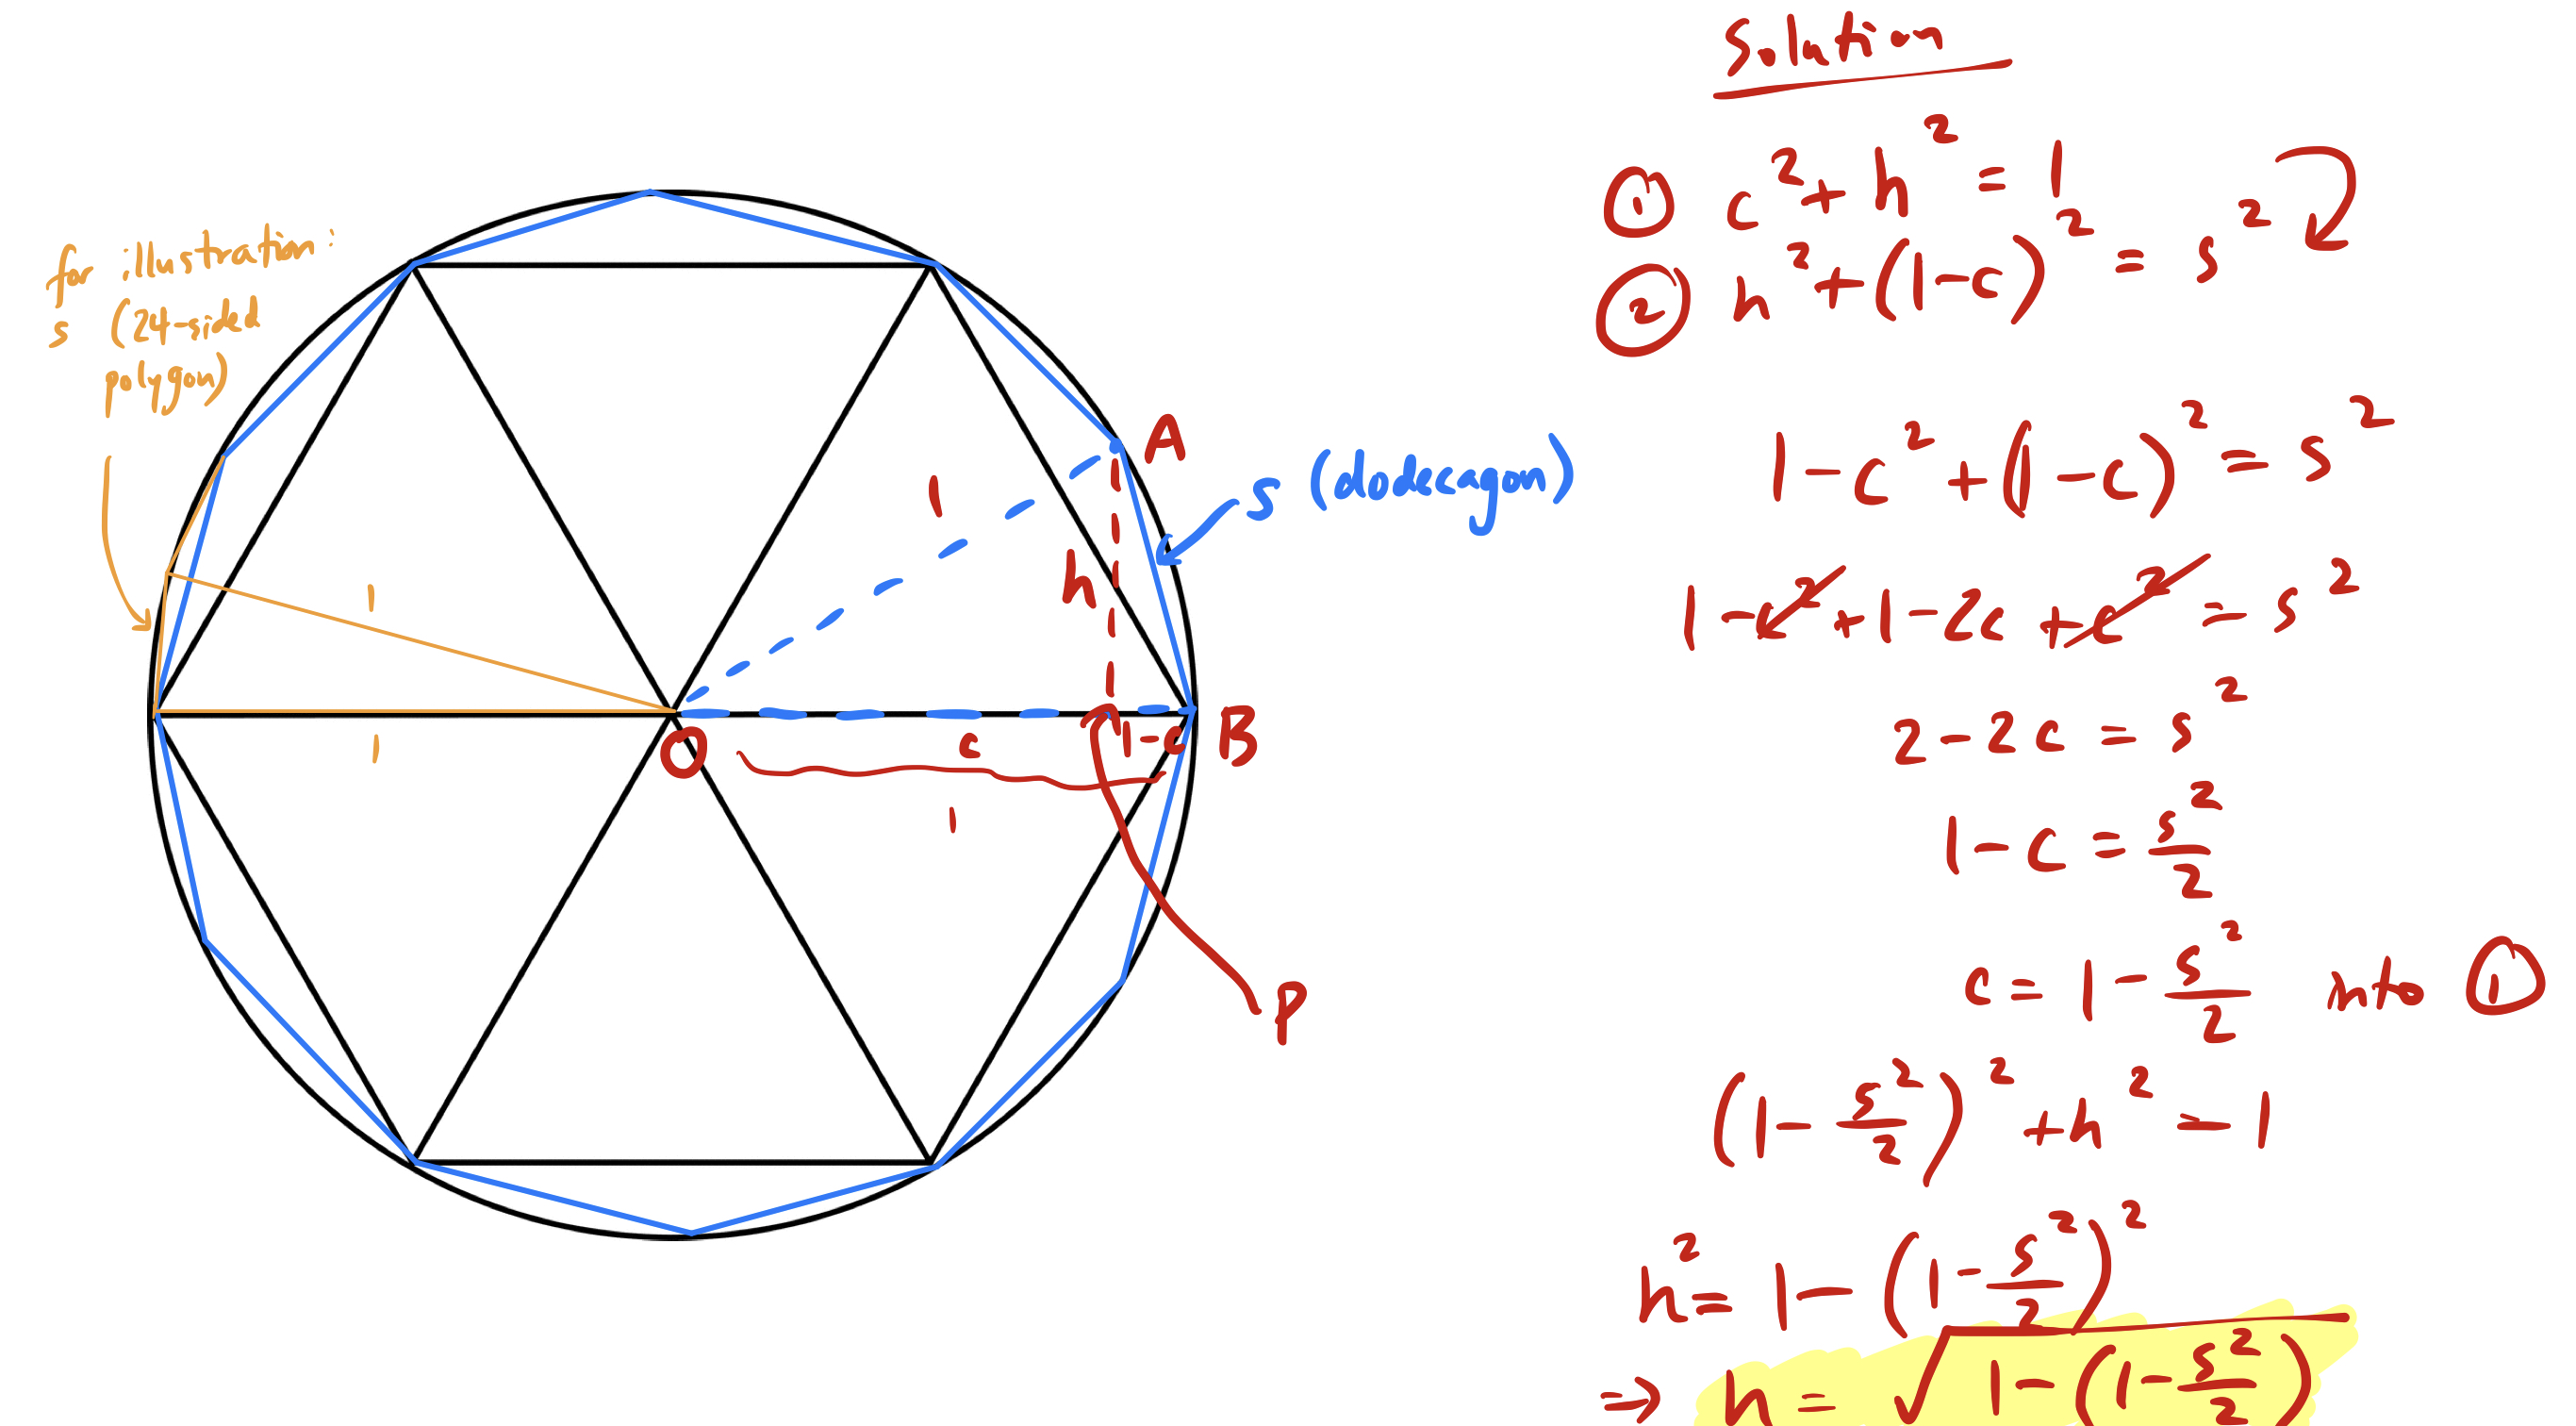 for illustration:
s (24-sided
polygon)
1
1
1
h
A
s (dodecagon)
O
c
1-c
B
1
P
Solution
① c² + h² = 1
② h² + (1-c)² = s²
1 - c² + (1-c)² = s²
1 - c² + 1 - 2c + c² = s²
2 - 2c = s²
1 - c = s²/2
c = 1 - s²/2 into ①
(1 - s²/2)² + h² = 1
h² = 1 - (1 - s²/2)²
⇒ h = √(1 - (1 - s²/2)